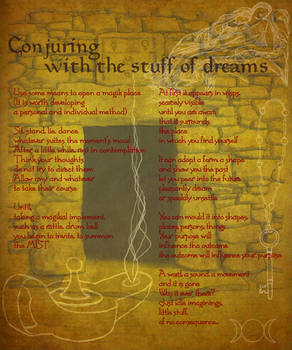 Conjuring
with the stuff of dreams
Use some means to open a magik place
(It is worth developing
a personal and individual method)
Sit, stand, lie, dance
whatever suits the moment's mood
After a little while, rest in contemplation
Think your thoughts
do not try to direct them
Allow any and whatever
to take their course.
Until,
taking a magikal impliment,
such as a rattle, drum, bell
you begin to invite, to summon
the MIST
At first it appears in wisps,
scarcely visible
until you are aware
that it surrounds
the place
in which you find yourself
It can adapt a form a shape
and show you the past
let you peer into the future
pleasantly dream
or spookily unsettle
You can mould it into shapes,
places, persons, things.
Your purpose will
influence the outcome
the outcome will influence your purpose
A word, a sound, a movement
and it is gone
Was it ever there?
Just idle imaginings,
little stuff,
of no consequence...